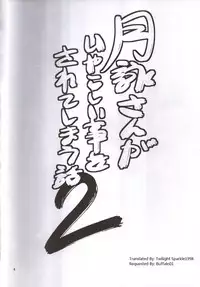 月詠さんが
いやらしい事を
されてしまう話
2
Translated By: Twilight Sparkle1998
Requested By: Buffalo01